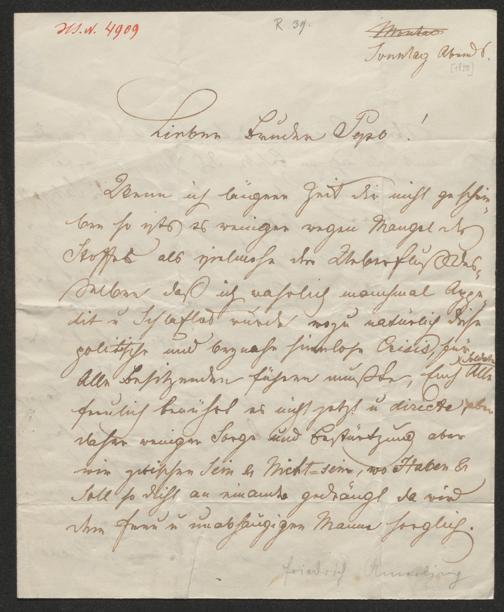 Hs. N. 4909
R. 39.
Montag
Sonntag Abends.
[18]
Lieber Bruder Pepo!
Wenn ich längere Zeit dir nicht geschrie-
ben so ists es weniger wegen Mangel des
Stoffes als vielmehr der Ueberfluß des-
selben daß ich wahrlich manchmal Appe
tit u Schlaflos wurde wozu natürlich diese
politische und beynahe sinnlose Crisis, für
Alle Besitzenden führen mußte, Euch Alle
freulich berührt es nicht jetzt u directe, aber
daher weniger Sorge und Bestürtzung aber
wie zwischen Sein & Nicht=sein, wo Haben &
Soll so dicht an einander gedrängt da wird
dem freu u unabhängigen Manne sorglich.
Friedrich Amerling